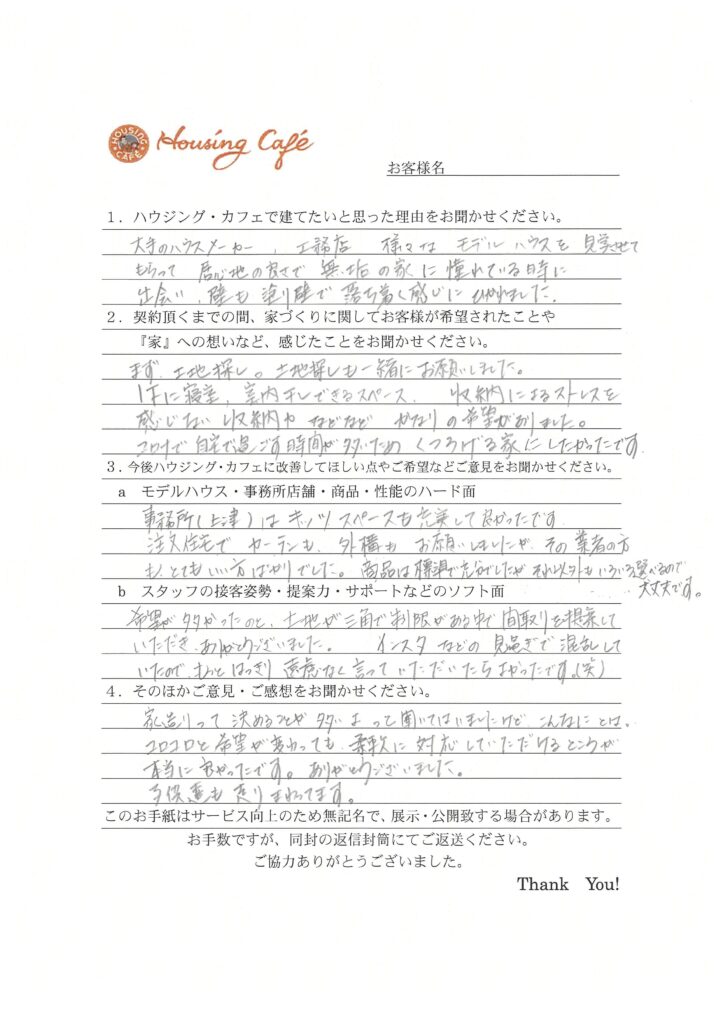 HOUSING CAFÉ
Housing Café
お客様名
1．ハウジング・カフェで建てたいと思った理由をお聞かせください。
大手のハウスメーカー、工務店 様々な モデルハウスを 見学させて
もらって 居心地の良さで 無垢の家に憧れている時に
出会い、壁も塗り壁で 落ち着く感じに ひかれました。
2．契約頂くまでの間、家づくりに関してお客様が希望されたことや
『家』への想いなど、感じたことをお聞かせください。
まず、土地探し。土地探しも一緒にお願いしました。
1Fに寝室、室内干しできるスペース、収納によるストレスを
感じない 収納や などなど かなりの希望がありました。
コロナで自宅で過ごす時間が多いため くつろげる家にしたかったです。
3．今後ハウジング・カフェに改善してほしい点やご希望などご意見をお聞かせください。
a モデルハウス・事務所店舗・商品・性能のハード面
事務所(上津)は キッズスペースも充実して良かったです。
注文住宅で カーテンも、外構も お願いしましたが、その業者の方
も、とてもいい方ばかりでした。商品は標準で充分でしたが それ以外もいろいろ選べるので
大丈夫です。
b スタッフの接客姿勢・提案力・サポートなどのソフト面
希望が多かったのと、土地が三角で制限がある中で 間取りを提案して
いただき、ありがとうございました。 インスタなどの 見過ぎで 混乱して
いたので、もっと はっきり 遠慮なく 言って いただいたらよかったです。(笑)
4．そのほかご意見・ご感想をお聞かせください。
家造りって 決めることが多いよ って聞いてはいましたけど、こんなにとは。
コロコロと希望が変わっても、柔軟に対応していただけるところが
本当に良かったです。ありがとうございました。
子供達も走りまわってます。
このお手紙はサービス向上のため無記名で、展示・公開致する場合があります。
お手数ですが、同封の返信封筒にてご返送ください。
ご協力ありがとうございました。
Thank You!